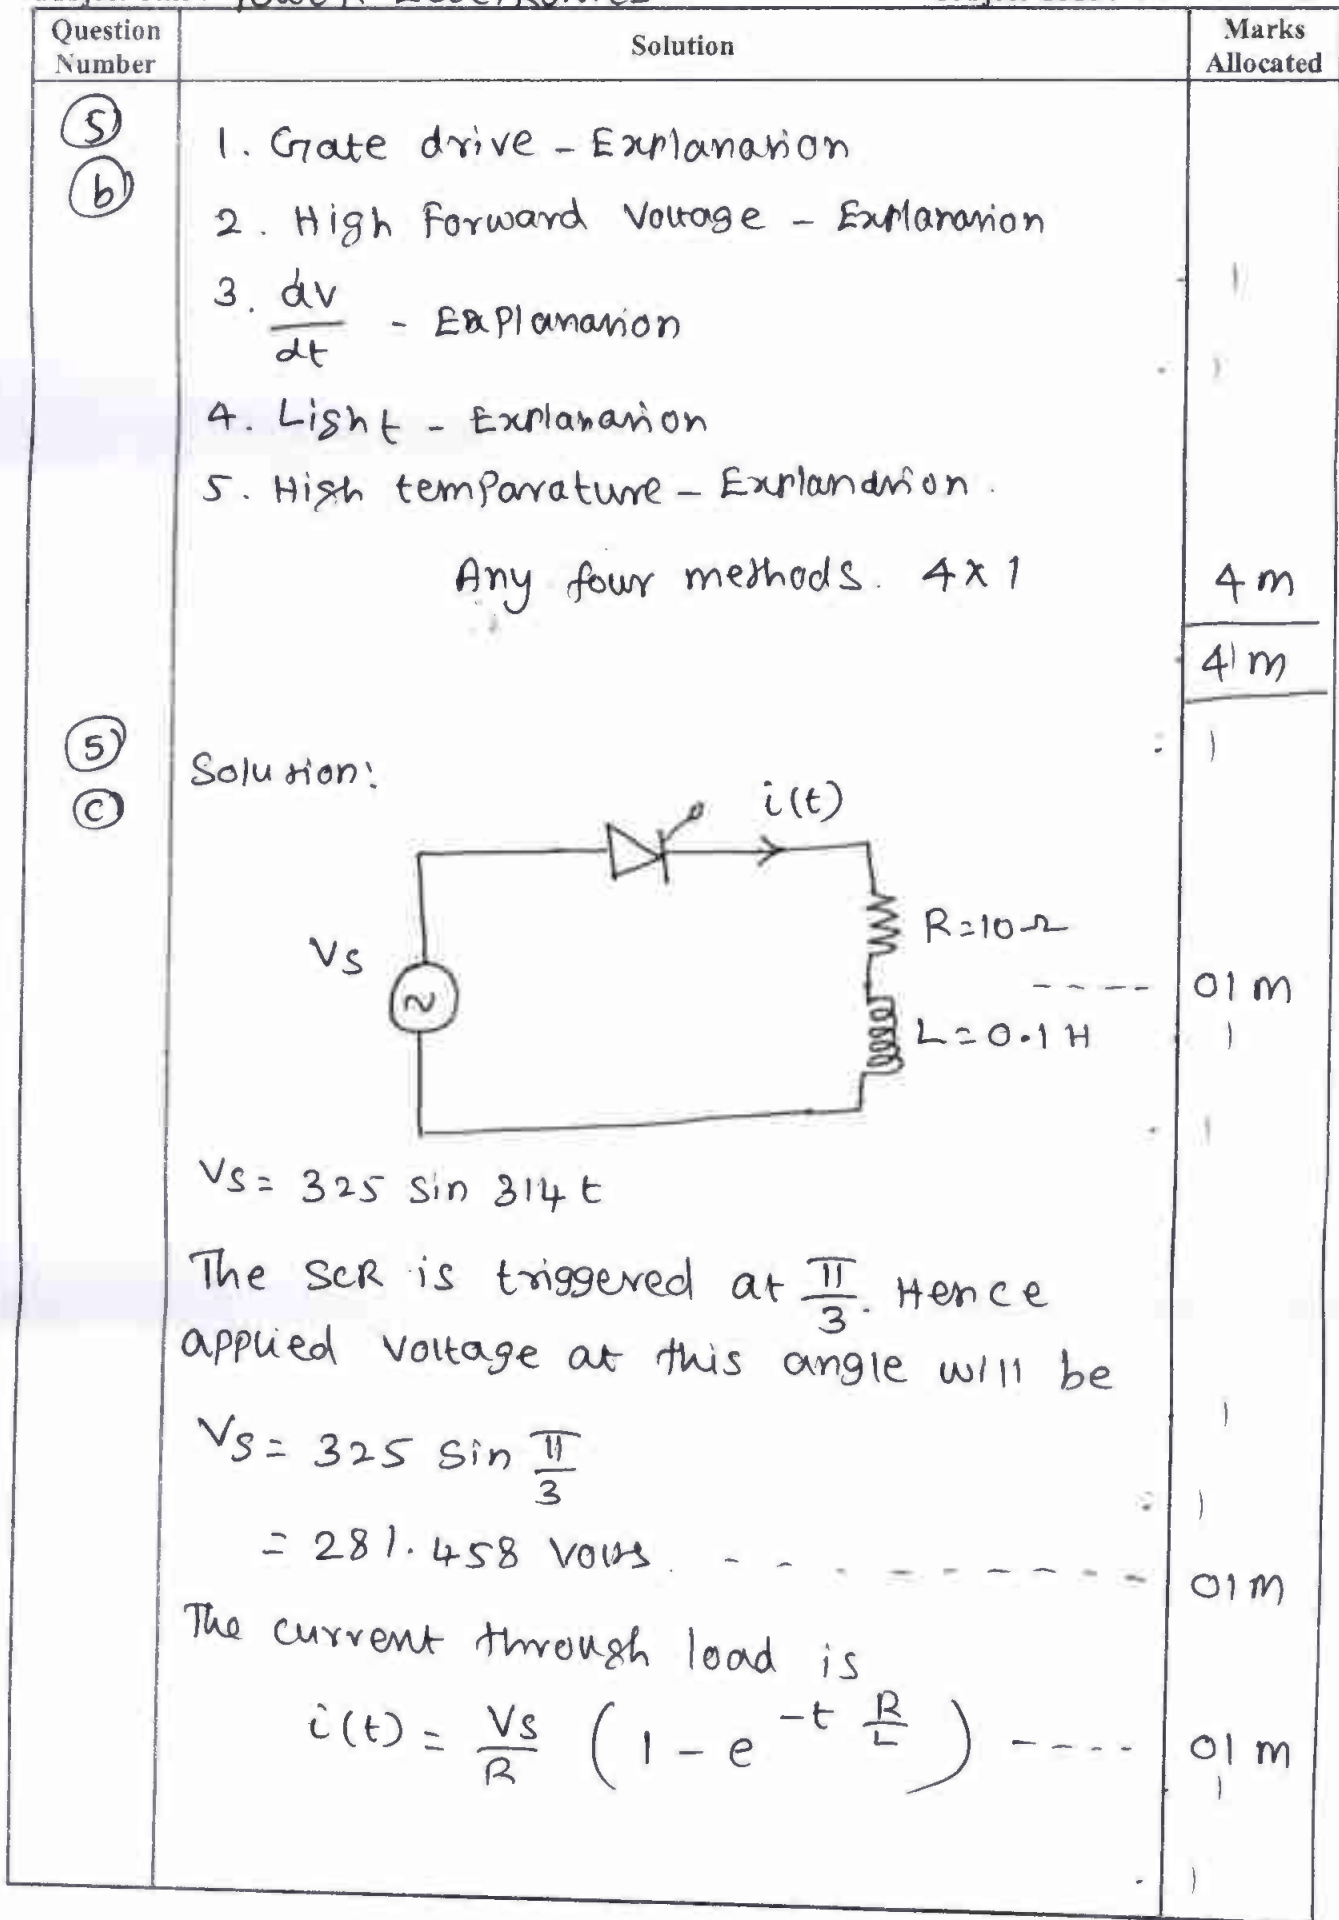 Power Electronics
Question Number
Solution
Marks Allocated
5
b
1. Gate drive - Explanation
2. High Forward Voltage - Explanation
3. dv/dt - Explanation
4. Light - Explanation
5. High temparature - Explanation.
Any four methods. 4x1
4 m
4 m
5
c
Solution:
i(t)
Vs
R=10Ω
---- 01 m
L=0.1 H
Vs = 325 sin 314 t
The SCR is triggered at π/3. Hence
applied voltage at this angle will be
Vs = 325 sin π/3
= 281.458 volts. ---------- 01 m
The current through load is
i(t) = Vs/R (1 - e^(-t R/L)) ---- 01 m